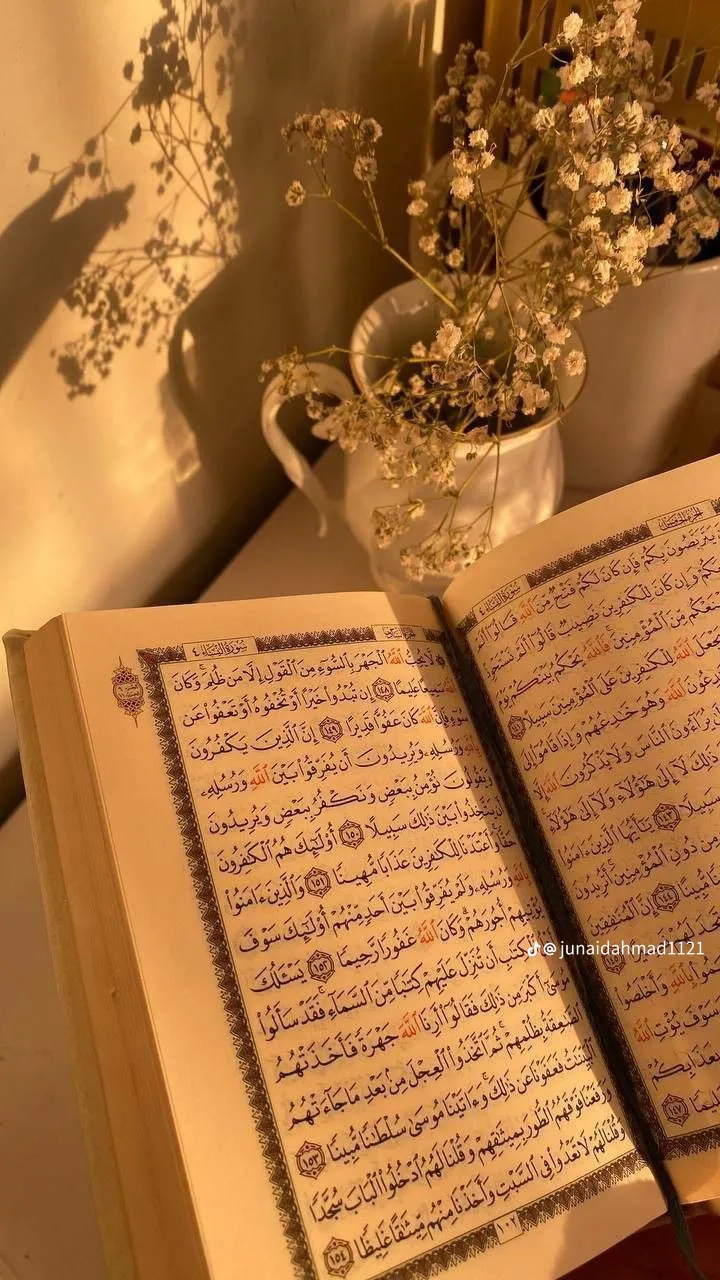 الجزء الخامس
سورة النساء
يَتَرَبَّصُونَ بِكُمْ فَإِن كَانَ لَكُمْ فَتْحٌ مِّنَ ٱللَّهِ قَالُوٓا۟ أَلَمْ
وَإِن كَانَ لِلْكَٰفِرِينَ نَصِيبٌ قَالُوٓا۟ أَلَمْ نَسْتَحْوِذْ
مِّنَ ٱلْمُؤْمِنِينَ فَٱللَّهُ يَحْكُمُ بَيْنَكُمْ يَوْمَ
ٱللَّهُ لِلْكَٰفِرِينَ عَلَى ٱلْمُؤْمِنِينَ سَبِيلًا ١٤١
ٱللَّهَ وَهُوَ خَٰدِعُهُمْ وَإِذَا قَامُوٓا۟ إِلَى
يُرَآءُونَ ٱلنَّاسَ وَلَا يَذْكُرُونَ ٱللَّهَ إِلَّا
ذَٰلِكَ لَآ إِلَىٰ هَٰٓؤُلَآءِ وَلَآ إِلَىٰ هَٰٓؤُلَآءِ
سَبِيلًا ١٤٣ يَٰٓأَيُّهَا ٱلَّذِينَ ءَامَنُوا۟
مِن دُونِ ٱلْمُؤْمِنِينَ أَتُرِيدُونَ
مُّبِينًا ١٤٤ إِنَّ ٱلْمُنَٰفِقِينَ
تَجِدَ لَهُمْ
بِٱللَّهِ وَأَخْلَصُوا۟
سَوْفَ يُؤْتِ ٱللَّهُ
بِعَذَابِكُمْ
عَلِيمًا ١٤٧
سورة النساء ٤
لَّا يُحِبُّ ٱللَّهُ ٱلْجَهْرَ بِٱلسُّوٓءِ مِنَ ٱلْقَوْلِ إِلَّا مَن ظُلِمَ ۚ وَكَانَ
ٱللَّهُ سَمِيعًا عَلِيمًا ١٤٨ إِن تُبْدُوا۟ خَيْرًا أَوْ تُخْفُوهُ أَوْ تَعْفُوا۟ عَن
سُوٓءٍ فَإِنَّ ٱللَّهَ كَانَ عَفُوًّا قَدِيرًا ١٤٩ إِنَّ ٱلَّذِينَ يَكْفُرُونَ
بِٱللَّهِ وَرُسُلِهِۦ وَيُرِيدُونَ أَن يُفَرِّقُوا۟ بَيْنَ ٱللَّهِ وَرُسُلِهِۦ
وَيَقُولُونَ نُؤْمِنُ بِبَعْضٍ وَنَكْفُرُ بِبَعْضٍ وَيُرِيدُونَ
أَن يَتَّخِذُوا۟ بَيْنَ ذَٰلِكَ سَبِيلًا ١٥٠ أُو۟لَٰٓئِكَ هُمُ ٱلْكَٰفِرُونَ
حَقًّا ۚ وَأَعْتَدْنَا لِلْكَٰفِرِينَ عَذَابًا مُّهِينًا ١٥١ وَٱلَّذِينَ ءَامَنُوا۟
بِٱللَّهِ وَرُسُلِهِۦ وَلَمْ يُفَرِّقُوا۟ بَيْنَ أَحَدٍ مِّنْهُمْ أُو۟لَٰٓئِكَ سَوْفَ
يُؤْتِيهِمْ أُجُورَهُمْ ۗ وَكَانَ ٱللَّهُ غَفُورًا رَّحِيمًا ١٥٢ يَسْـَٔلُكَ
ٱلْكِتَٰبِ أَن تُنَزِّلَ عَلَيْهِمْ كِتَٰبًا مِّنَ ٱلسَّمَآءِ ۚ فَقَدْ سَأَلُوا۟
مُوسَىٰٓ أَكْبَرَ مِن ذَٰلِكَ فَقَالُوٓا۟ أَرِنَا ٱللَّهَ جَهْرَةً فَأَخَذَتْهُمُ
ٱلصَّٰعِقَةُ بِظُلْمِهِمْ ۚ ثُمَّ ٱتَّخَذُوا۟ ٱلْعِجْلَ مِنۢ بَعْدِ مَا جَآءَتْهُمُ
ٱلْبَيِّنَٰتُ فَعَفَوْنَا عَن ذَٰلِكَ ۚ وَءَاتَيْنَا مُوسَىٰ سُلْطَٰنًا مُّبِينًا ١٥٣
وَرَفَعْنَا فَوْقَهُمُ ٱلطُّورَ بِمِيثَٰقِهِمْ وَقُلْنَا لَهُمُ ٱدْخُلُوا۟ ٱلْبَابَ سُجَّدًا
وَقُلْنَا لَهُمْ لَا تَعْدُوا۟ فِى ٱلسَّبْتِ وَأَخَذْنَا مِنْهُم مِّيثَٰقًا غَلِيظًا ١٥٤
١٠٢
@junaidahmad1121